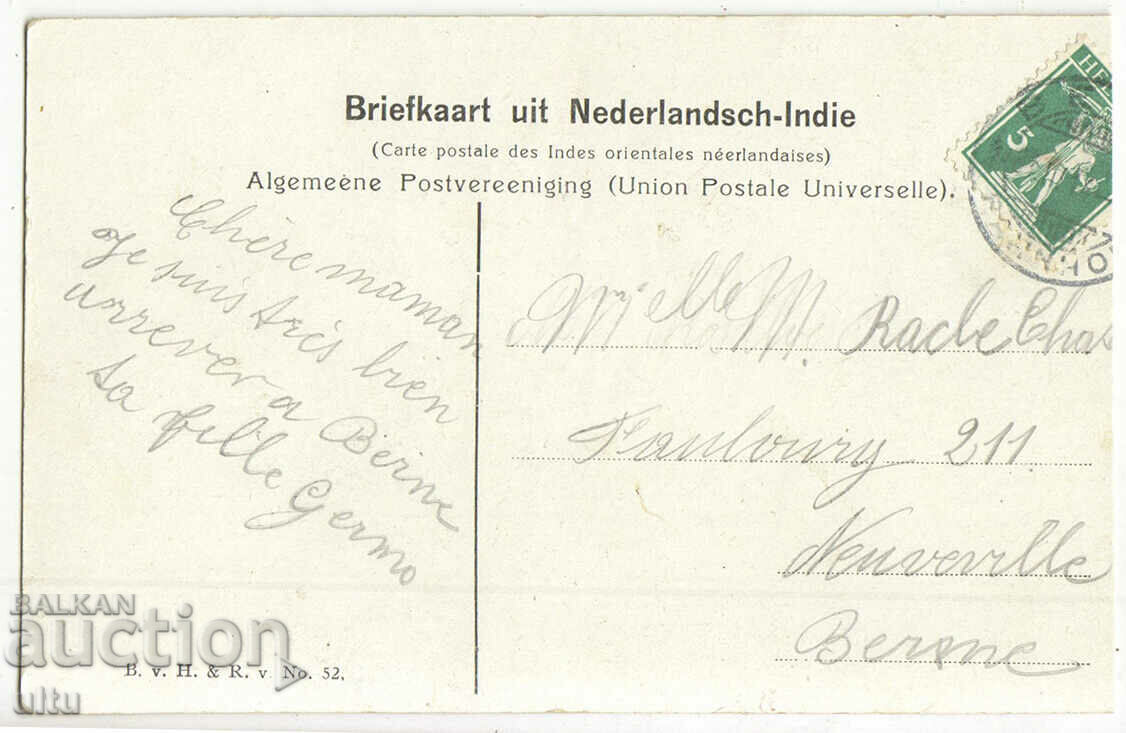 Briefkaart uit Nederlandsch-Indie
(Carte postale des Indes orientales néerlandaises)
Algemeene Postvereeniging (Union Postale Universelle).
HE
5
Chère maman
Je suis très bien
arrever a Berne
ta fille Germo
M. Racle Chas
Faubourg 211
Neuveville
Berne
B. v. H. & R. v No. 52,
BALKAN
auction
ultu